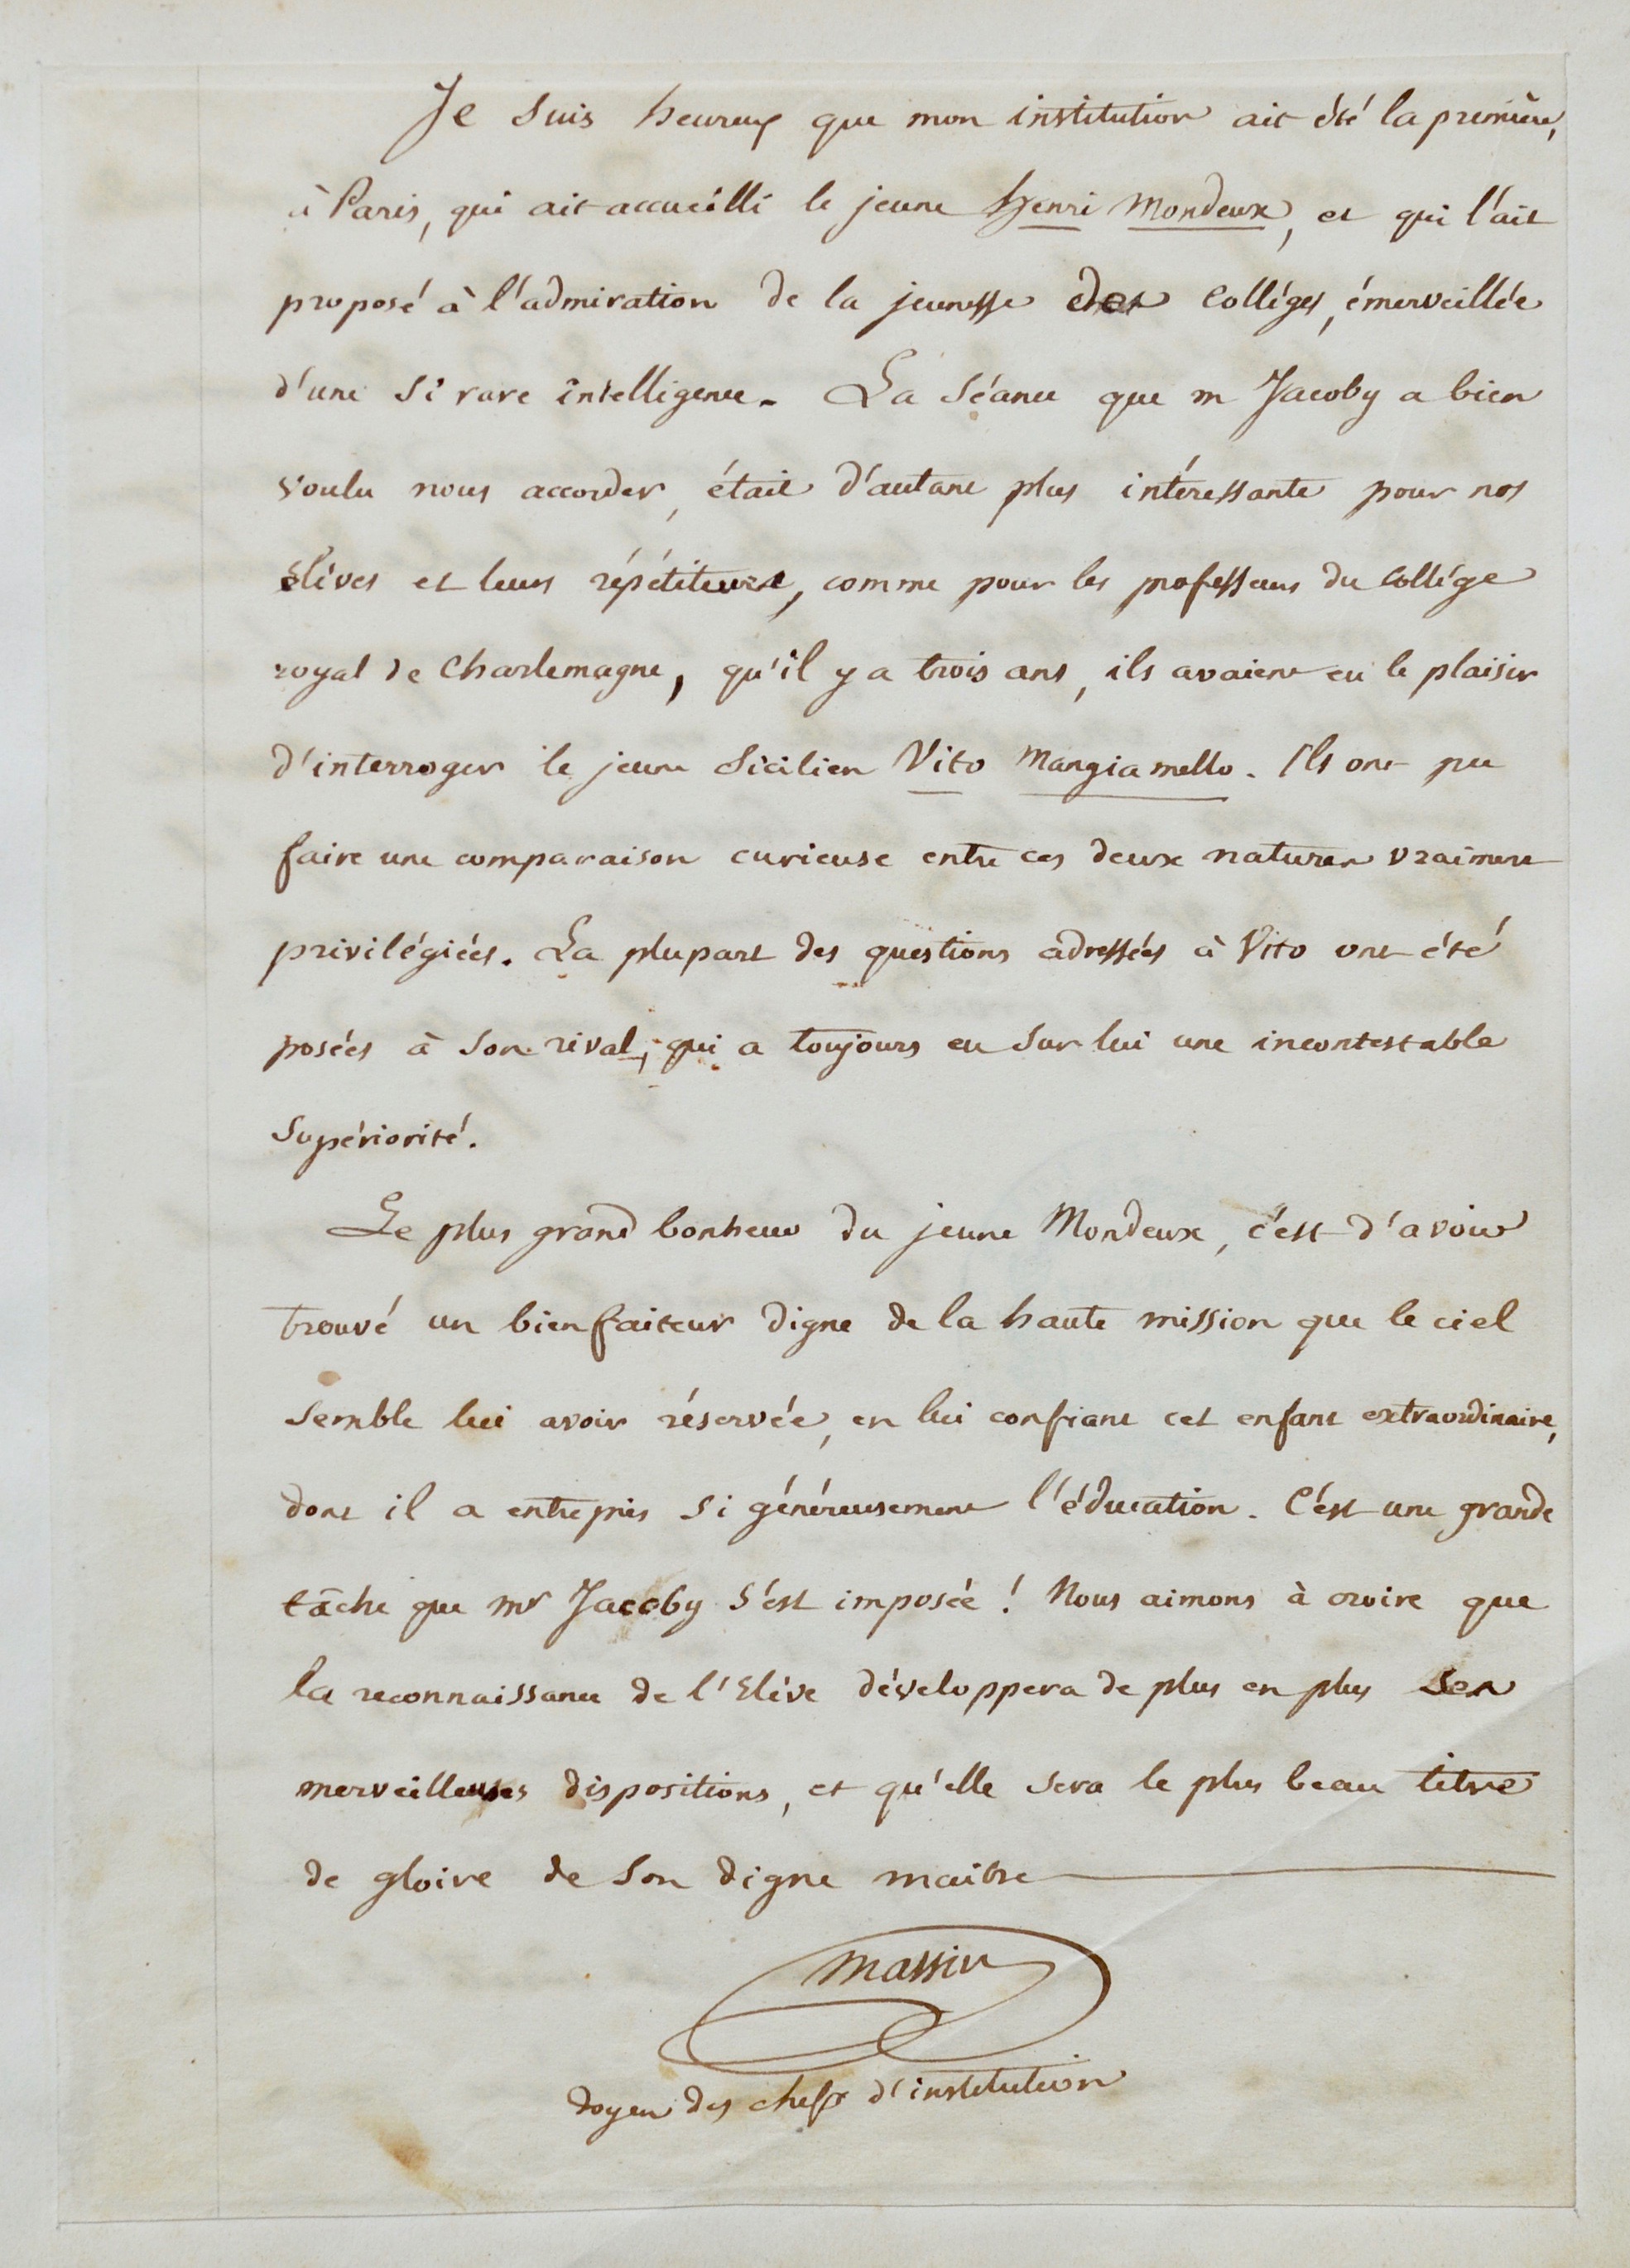 Je suis heureux que mon institution ait été la première,
à Paris, qui ait accueilli le jeune Henri Mondeux, et qui l'ait
proposé à l'admiration de la jeunesse des Colléges, émerveillée
d'une si rare intelligence. La séance que m Jacoby a bien
voulu nous accorder, était d'autant plus intéressante pour nos
élèves et leurs répétiteurs, comme pour les professeurs du Collége
royal de Charlemagne, qu'il y a trois ans, ils avaient eu le plaisir
d'interroger le jeune Sicilien Vito Mangiamello. Ils ont pu
faire une comparaison curieuse entre ces deux natures vraiment
privilégiées. La plupart des questions adressées à Vito ont été
posées à son rival, qui a toujours eu sur lui une incontestable
supériorité.
Le plus grand bonheur du jeune Mondeux, c'est d'avoir
trouvé un bienfaiteur digne de la haute mission que le ciel
semble lui avoir réservée, en lui confiant cet enfant extraordinaire,
dont il a entrepris si généreusement l'éducation. C'est une grande
tâche que mr Jacoby s'est imposée ! Nous aimons à croire que
la reconnaissance de l'Elève développera de plus en plus ses
merveilleuses dispositions, et qu'elle sera le plus beau titre
de gloire de son digne maitre
Massin
doyen des chefs d'institution